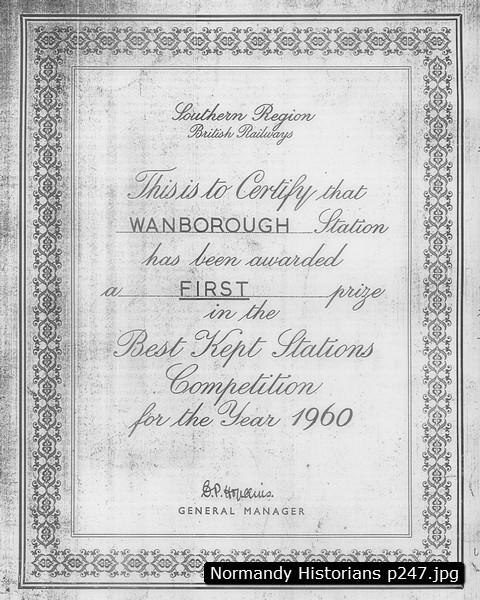 Southern Region
British Railways
This is to Certify that
WANBOROUGH Station
has been awarded
a FIRST prize
in the
Best Kept Stations
Competition
for the Year 1960
GENERAL MANAGER
Normandy Historians p247.jpg